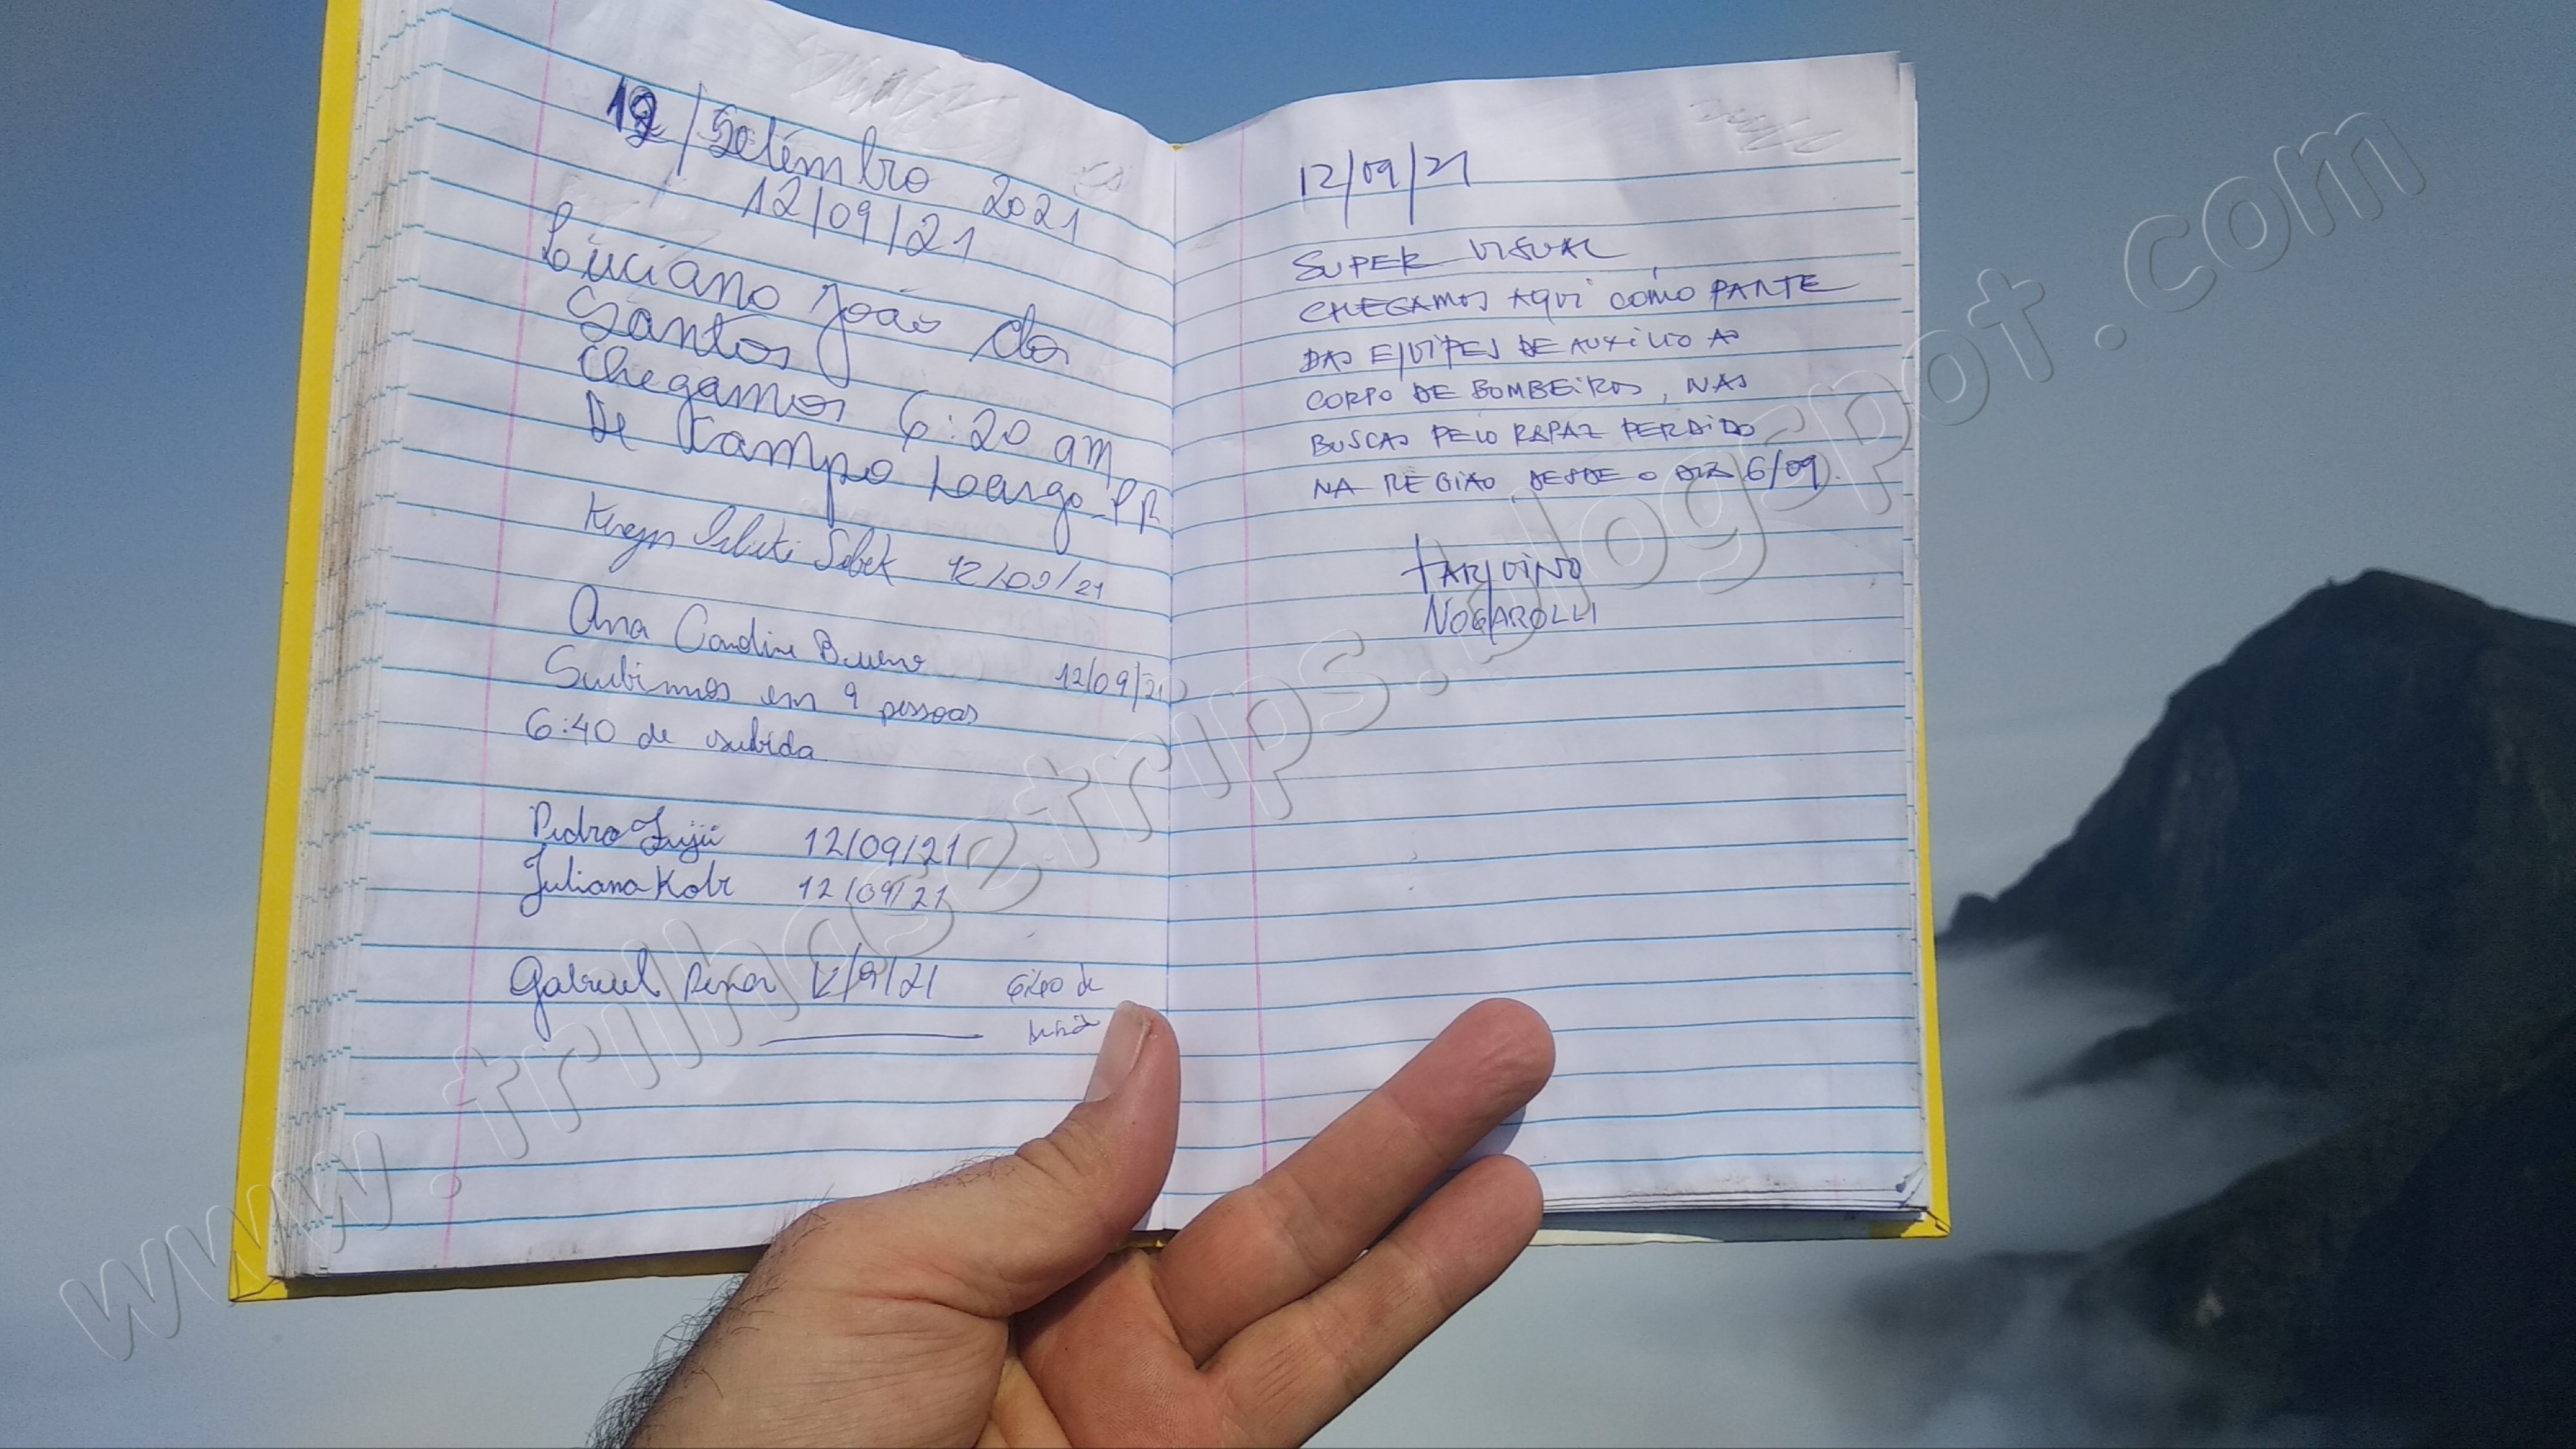 12/Setembro 2021
12/09/21
Luciano João dos
Santos
Chegamos 6:20 am
De Campo Largo-PR
12/09/21
Ana Caroline Bueno 12/09/21
Subimos em 9 pessoas
6:40 de subida
Pedro Fujii 12/09/21
Juliana 12/09/21
Gabriel 12/9/21 6:40 de
12/09/21
SUPER VISUAL
CHEGAMOS AQUI COMO PARTE
DAS EQUIPES DE AUXILIO AO
CORPO DE BOMBEIROS, NAS
BUSCAS PELO RAPAZ PERDIDO
NA REGIÃO DESDE O DIA 6/09.
TARQUINO
NOGAROLLI
www.trilhasetrips.blogspot.com